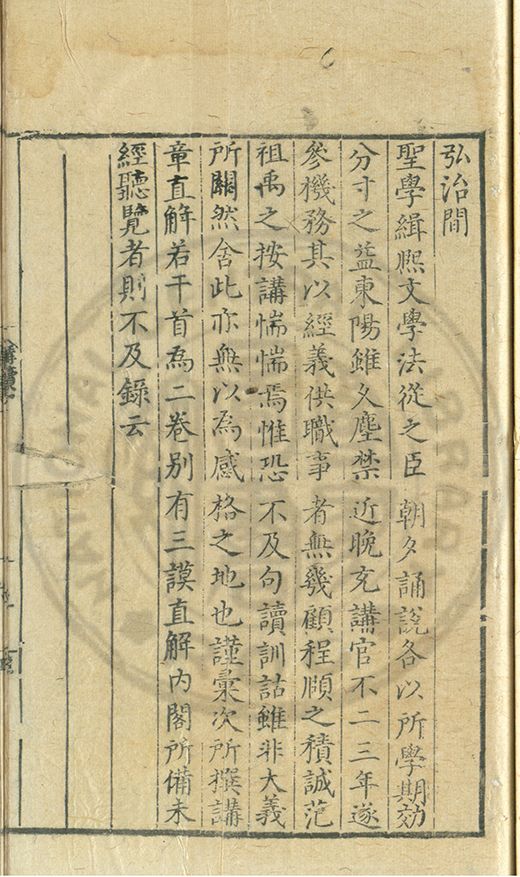 弘治間
聖學緝熈文學法從之臣朝夕誦說各以所學期効
分寸之益東陽雖久塵禁近晚充講官不二三年遂
參機務其以經義供職事者無幾顧程頤之積誠范
祖禹之按講惴惴焉惟恐不及句讀訓詁雖非大義
所關然舍此亦無以為感格之地也謹彙次所撰講
章直解若干首為二卷别有三謨直解内閣所備未
經聽覽者則不及錄云